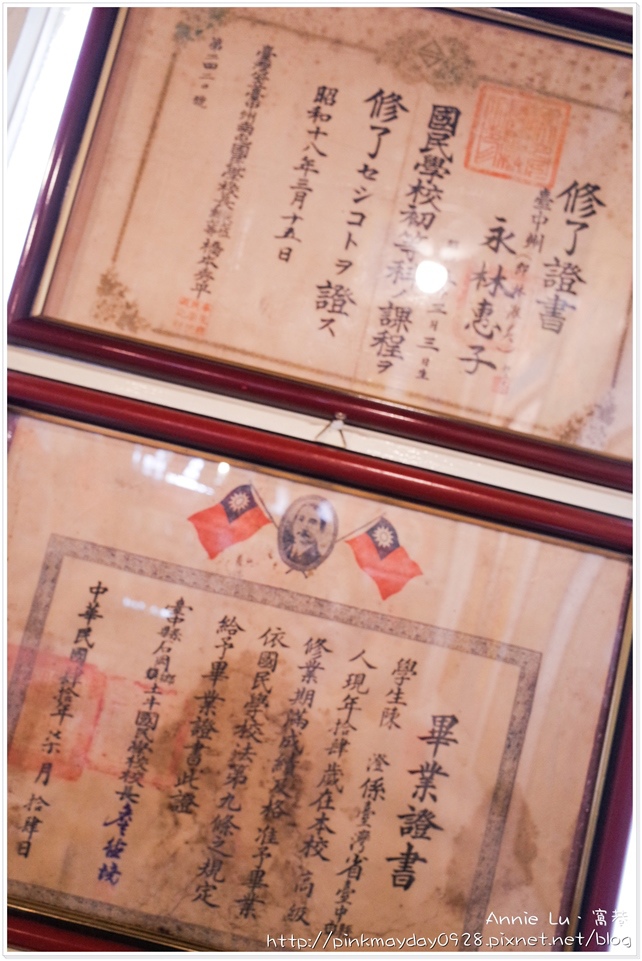 修了證書
臺中州
永林惠子
月三日生
國民學校初等科ノ課程ヲ
修了セシコトヲ證ス
昭和十八年三月十五日
國民學校長
第二四二〇號
畢業證書
學生陳 澄係臺灣省臺中縣
人現年拾肆歲在本校高級
修業期滿成績及格准予畢業
依國民學校法第九條之規定
給予畢業證書此證
臺中縣石岡鄉土牛國民學校校長
中華民國肆拾年柒月拾肆日
Annie Lu·窩巷
http://pinkmayday0928.pixnet.net/blog